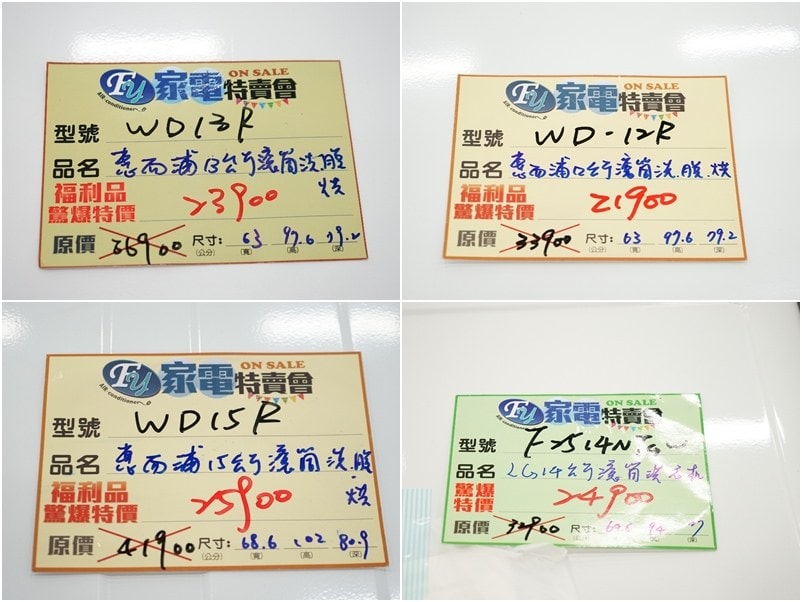 FU 家電特賣會 ON SALE
AIR-conditioner
型號 WD13R
品名 惠而浦13公斤滾筒洗脫
烘
福利品
驚爆特價 23900
原價 36900 尺寸: 63 97.6 79.2
(公分) (寬) (高) (深)
FU 家電特賣會 ON SALE
AIR-conditioner
型號 WD-12R
品名 惠而浦12公斤滾筒洗.脫.烘
福利品
驚爆特價 21900
原價 33900 尺寸: 63 97.6 79.2
(公分) (寬) (高) (深)
FU 家電特賣會 ON SALE
AIR-conditioner
型號 WD15R
品名 惠而浦15公斤滾筒洗.脫
.烘
福利品
驚爆特價 25900
原價 41900 尺寸: 68.6 102 80.9
(公分) (寬) (高) (深)
FU 家電特賣會 ON SALE
AIR-conditioner
型號
品名 LG14公斤滾筒洗衣機
驚爆
特價 24900
原價 32900 尺寸:
(公分) (寬) (高) (深)